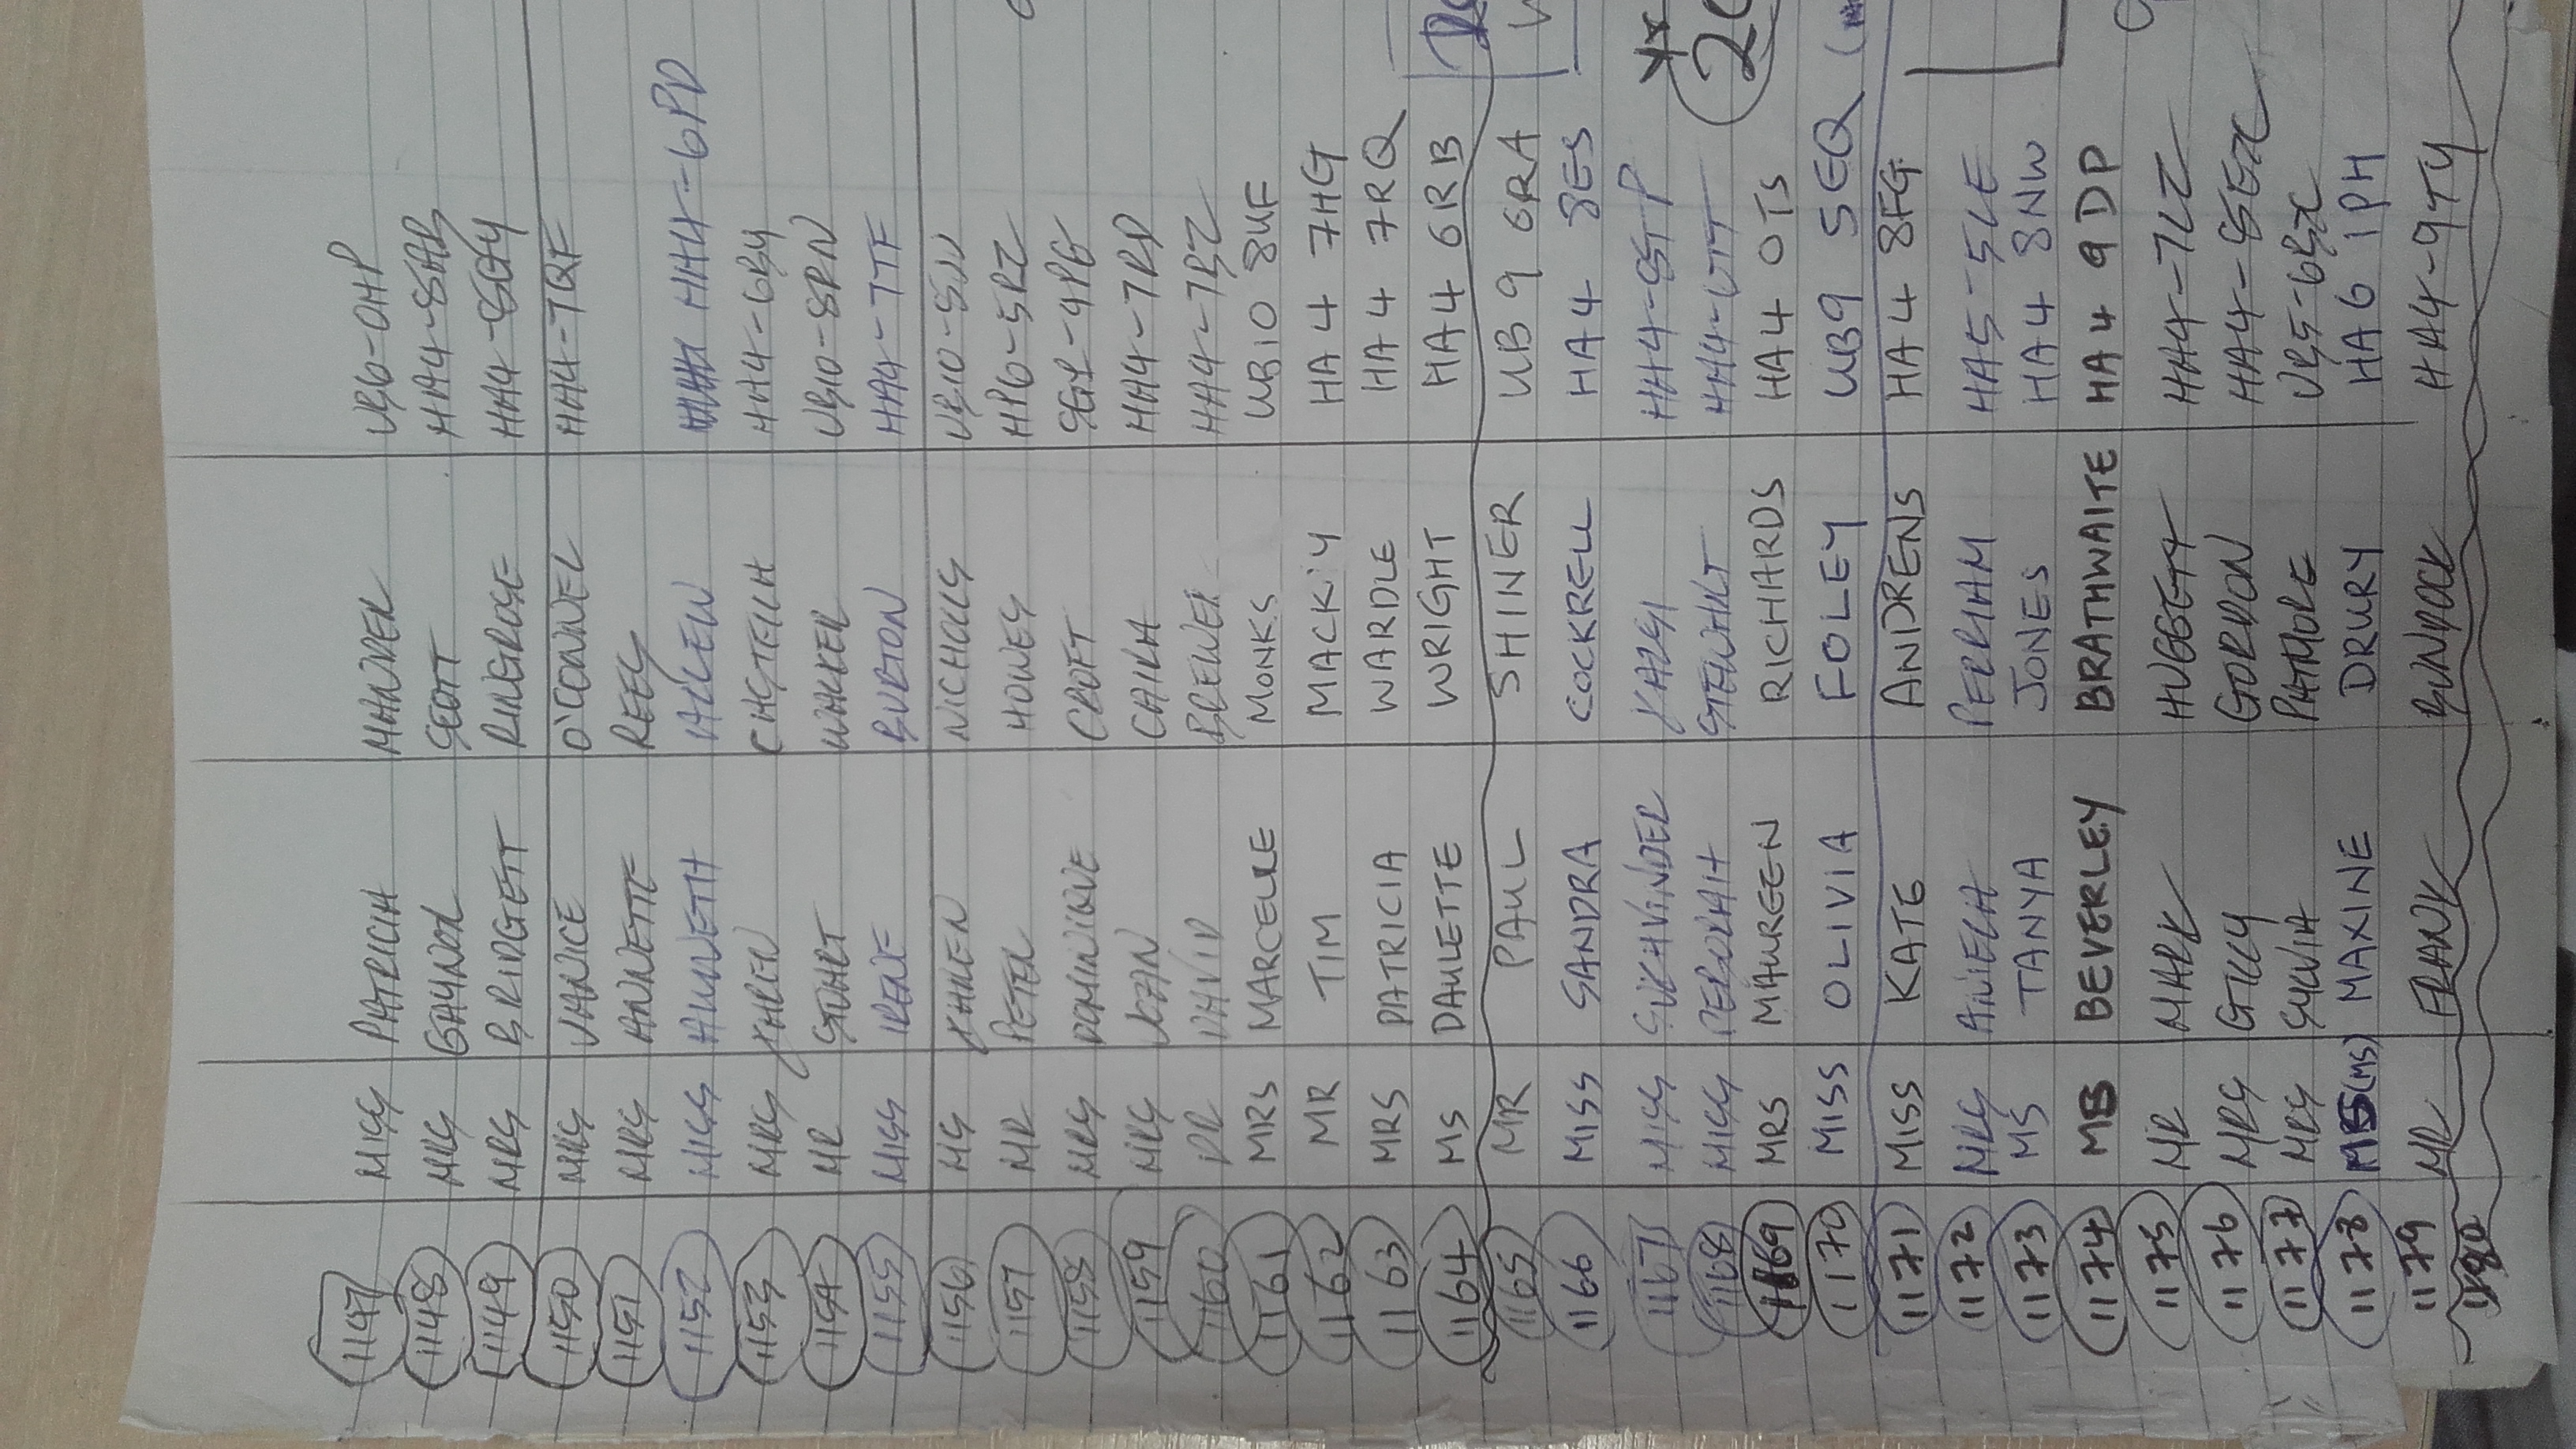 1147 MISS PATRICIA MANDER UB6-0HP
1148 MRS GAYNOR SCOTT HA4-8AB
1149 MRS BRIDGETT RINGROSE HA4-8GY
1150 MRS JANICE O'CONNEL HA4-7QF
1151 MRS ANNETTE REES
1152 MISS ALLEN HA4-6PD
1153 MRS KAREN CASTELLA HA4-6BY
1154 MR STUART WALKER UB10-8RN
1155 MISS IRENE BURTON HA4-7TF
1156 MS KAREN NICHOLLS UB10-8JU
1157 MR PETER HOWES HP6-5RZ
1158 MRS DOMINIQUE CROFT
1159 MRS JOAN CAIRA HA4-7RD
1160 DR DAVID BREWER HA4-7BZ
1161 MRS MARCELLE MONKS UB10 8UF
1162 MR TIM HA4 7HG
1163 MRS PATRICIA WARDLE HA4 7RQ
1164 MS DAULETTE WRIGHT HA4 6RB
1165 MR PAUL SHINER UB9 6RA
1166 MISS SANDRA COCKRELL HA4 8ES
1167 MISS SUKHVINDER KALSI HA4-8TP
1168 MISS DEBORAH STEWART
1169 MRS MAUREEN RICHARDS HA4 0TS
yr
1170 MISS OLIVIA FOLEY UB9 5EQ
1171 MISS KATE ANDRENS HA4 8FG
1172 MRS ANIELA PERRIAM HA5-5LE
1173 MS TANYA JONES HA4 8NW
1174 MS BEVERLEY BRATHWAITE HA4 9DP
1175 MR MARK HUGGETT HA4-7LZ
1176 MRS GILLY GORDON HA4-8EX
1177 MRS SYLVIA PATMORE UB5-6BX
1178 (MS) MAXINE DRURY HA6 1PH
1179 MR FRANK BUNDOCK HA4-9TY
1180